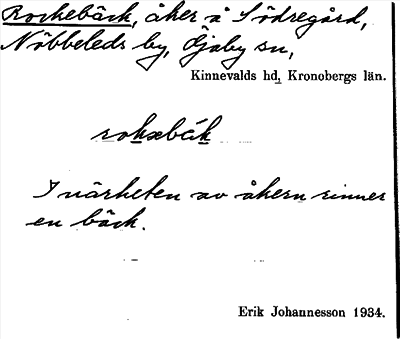 Rockebäck, åker å Södregård,
Nöbbeleds by, Öjaby sn,
Kinnevalds hd, Kronobergs län.
I närheten av åkern rinner
en bäck.
Erik Johannesson 1934.